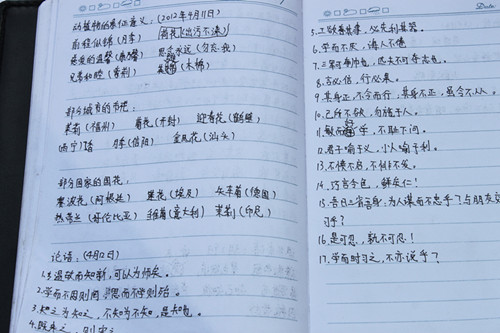 动植物的象征意义：(2012年4月11日)
前程似锦(月季) 荷花(出污不染)
思念永远(勿忘我)
兄弟和睦(紫荆) (木棉)
部分城市的市花：
茉莉(福州) 菊花(开封) 迎春花(鹤壁)
月季(信阳) 金凤花(汕头)
部分国家的国花：
赛波花(阿根廷) 莲花(埃及) 矢车菊(德国)
热带兰(哥伦比亚) 雏菊(意大利) 茉莉(印尼)
论语：(4月12日)
1.温故而知新，可以为师矣。
2.学而不思则罔，思而不学则殆。
3.知之为知之，不知为不知，是知也。
4.既来之，则安之
Date
5.工欲善其事，必先利其器。
6.学而不厌，诲人不倦
7.三军可夺帅也，匹夫不可夺志也。
8.言必信，行必果。
9.其身正，不令而行，其身不正，虽令不从。
10.己所不欲，勿施于人。
11.敏而好学，不耻下问。
12.君子喻于义，小人喻于利。
13.不愤不启，不悱不发。
14.巧言令色，鲜矣仁！
15.吾日三省吾身：为人谋而不忠乎？与朋友交
习乎？
16.是可忍，孰不可忍！
17.学而时习之，不亦说乎？